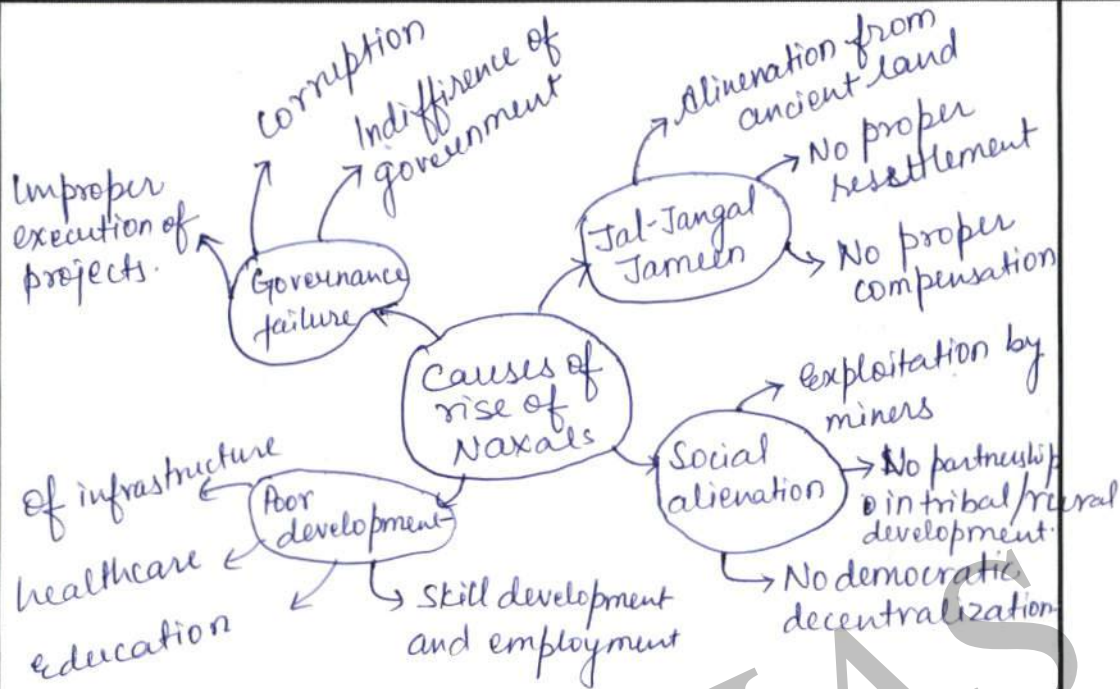 Causes of
rise of
Naxals
Governance
failure
Improper
execution of
projects.
Corruption
Indiffirence of
government
Jal-Jangal
Jameen
Alinenation from
ancient land
No proper
ressettlement
No proper
compensation
Social
alienation
Exploitation by
miners
No partnership
in tribal/rural
development.
No democratic
decentralization
Poor
development
of infrastructure
healthcare
education
Skill development
and employment
IAS